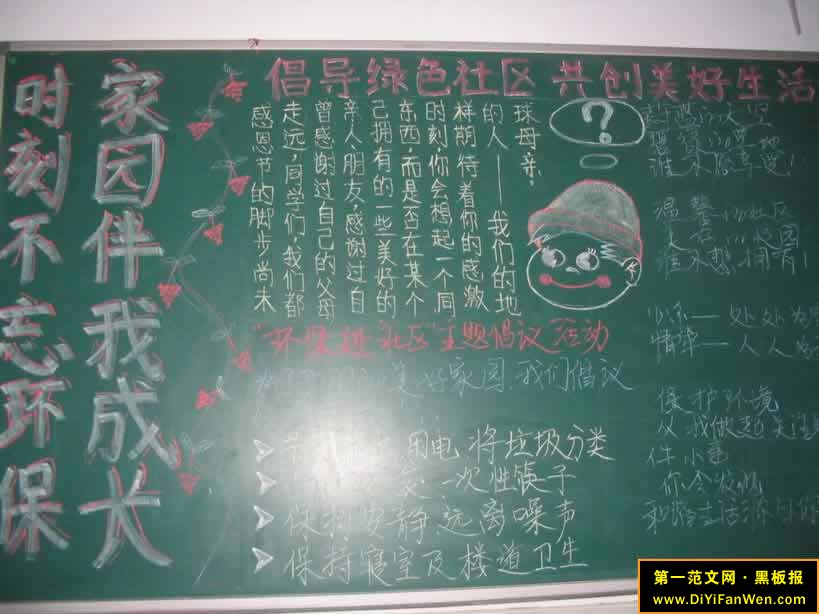 家园伴我成长
时刻不忘环保
倡导绿色社区 共创美好生活
感恩节的脚步尚未
走远,同学们,我们都
曾感谢过自己的父母
亲人,朋友,感谢过自
己拥有的一些美好的
东西,而是否在某个
时刻,你会想起一个同
样期待着你的感激
的人——我们的地
球母亲。
?
"环保进社区"主题倡议活动
美好家园,我们倡议
用电,将垃圾分类
一次性筷子
保持安静,远离噪声
保持寝室及楼道卫生
蔚蓝的天空
碧绿的草地
谁不愿享受!
温馨的社区
的校园
谁不想拥有!
— 处处为
情操— 人人为
保护环境
从我做起
件小事
你会发现
和谐生活源自你
第一范文网·黑板报
www.DiYiFanWen.com